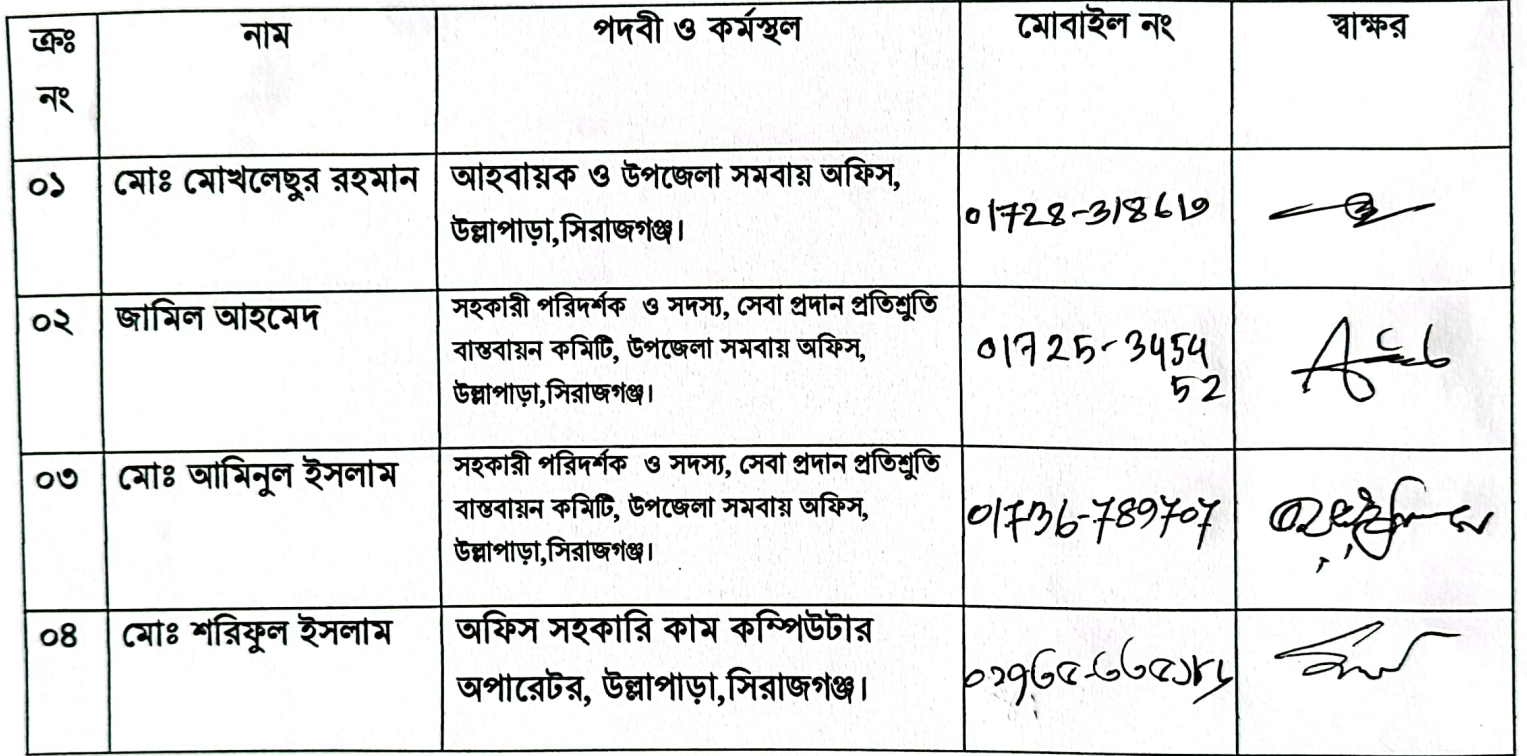 ক্রঃ নং নাম পদবী ও কর্মস্থল মোবাইল নং স্বাক্ষর
০১ মোঃ মোখলেছুর রহমান আহবায়ক ও উপজেলা সমবায় অফিস,
উল্লাপাড়া,সিরাজগঞ্জ।
01728-318619
০২ জামিল আহমেদ সহকারী পরিদর্শক ও সদস্য, সেবা প্রদান প্রতিশ্রুতি
বাস্তবায়ন কমিটি, উপজেলা সমবায় অফিস,
উল্লাপাড়া,সিরাজগঞ্জ।
01725-3454
52
০৩ মোঃ আমিনুল ইসলাম সহকারী পরিদর্শক ও সদস্য, সেবা প্রদান প্রতিশ্রুতি
বাস্তবায়ন কমিটি, উপজেলা সমবায় অফিস,
উল্লাপাড়া,সিরাজগঞ্জ।
01736-789707
০৪ মোঃ শরিফুল ইসলাম অফিস সহকারি কাম কম্পিউটার
অপারেটর, উল্লাপাড়া,সিরাজগঞ্জ।